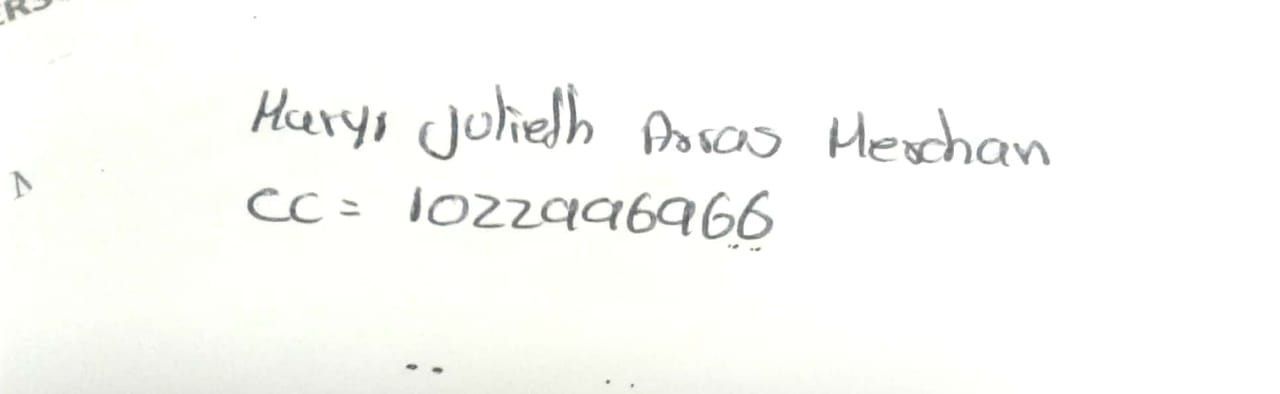 ERS
Marys Julieth Arras Merchan
CC = 1022996966